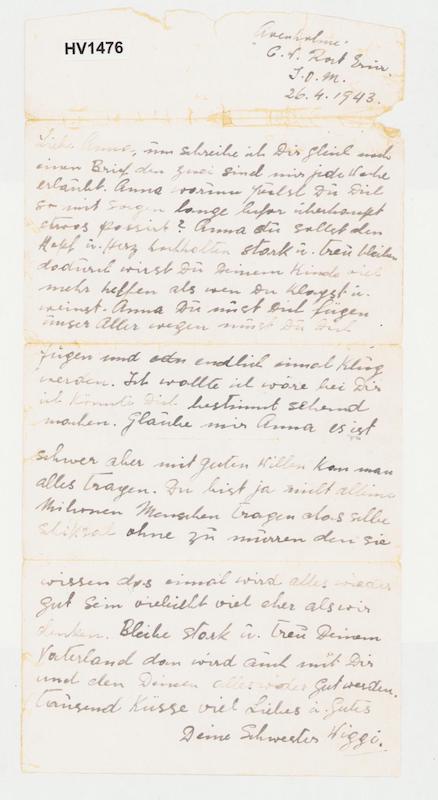 HV1476
C. V. Port Erin.
I.O.M.
26.4.1943.
Liebe Anna, nun schreibe ich Dir gleich noch
einen Brief, den zwei sind mir jede Woche
erlaubt. Anna warum Du Dich
so mit Sorgen lange befor überhaupt
etwas passirt? Anna du sollst den
Kopf u. Herz hochhalten stark u. treu bleiben
dadurch wirst Du Deinem Kinde viel
mehr helfen als wen Du klagst u.
weinst. Anna Du must Dich fügen
unser Aller wegen must Du Dich
fügen und endlich einmal Klug
werden. Ich wollte ich wäre bei Dir
ich könnte Dich bestimmt sehend
machen. Glaube mir Anna es ist
schwer aber mit guten Willen kan man
alles tragen. Du bist ja nicht alleine
Milionen Menschen tragen das selbe
shiksal ohne zu murren den sie
wissen das einmal wird alles wieder
gut sein vieleicht viel eher als wir
denken. Bleibe stark u. treu Deinem
Vaterland dan wird auch mit Dir
und den Deinen alles wider Gut werden.
tausend Küsse viel Liebes u. Gutes
Deine Schwester Wiggi.